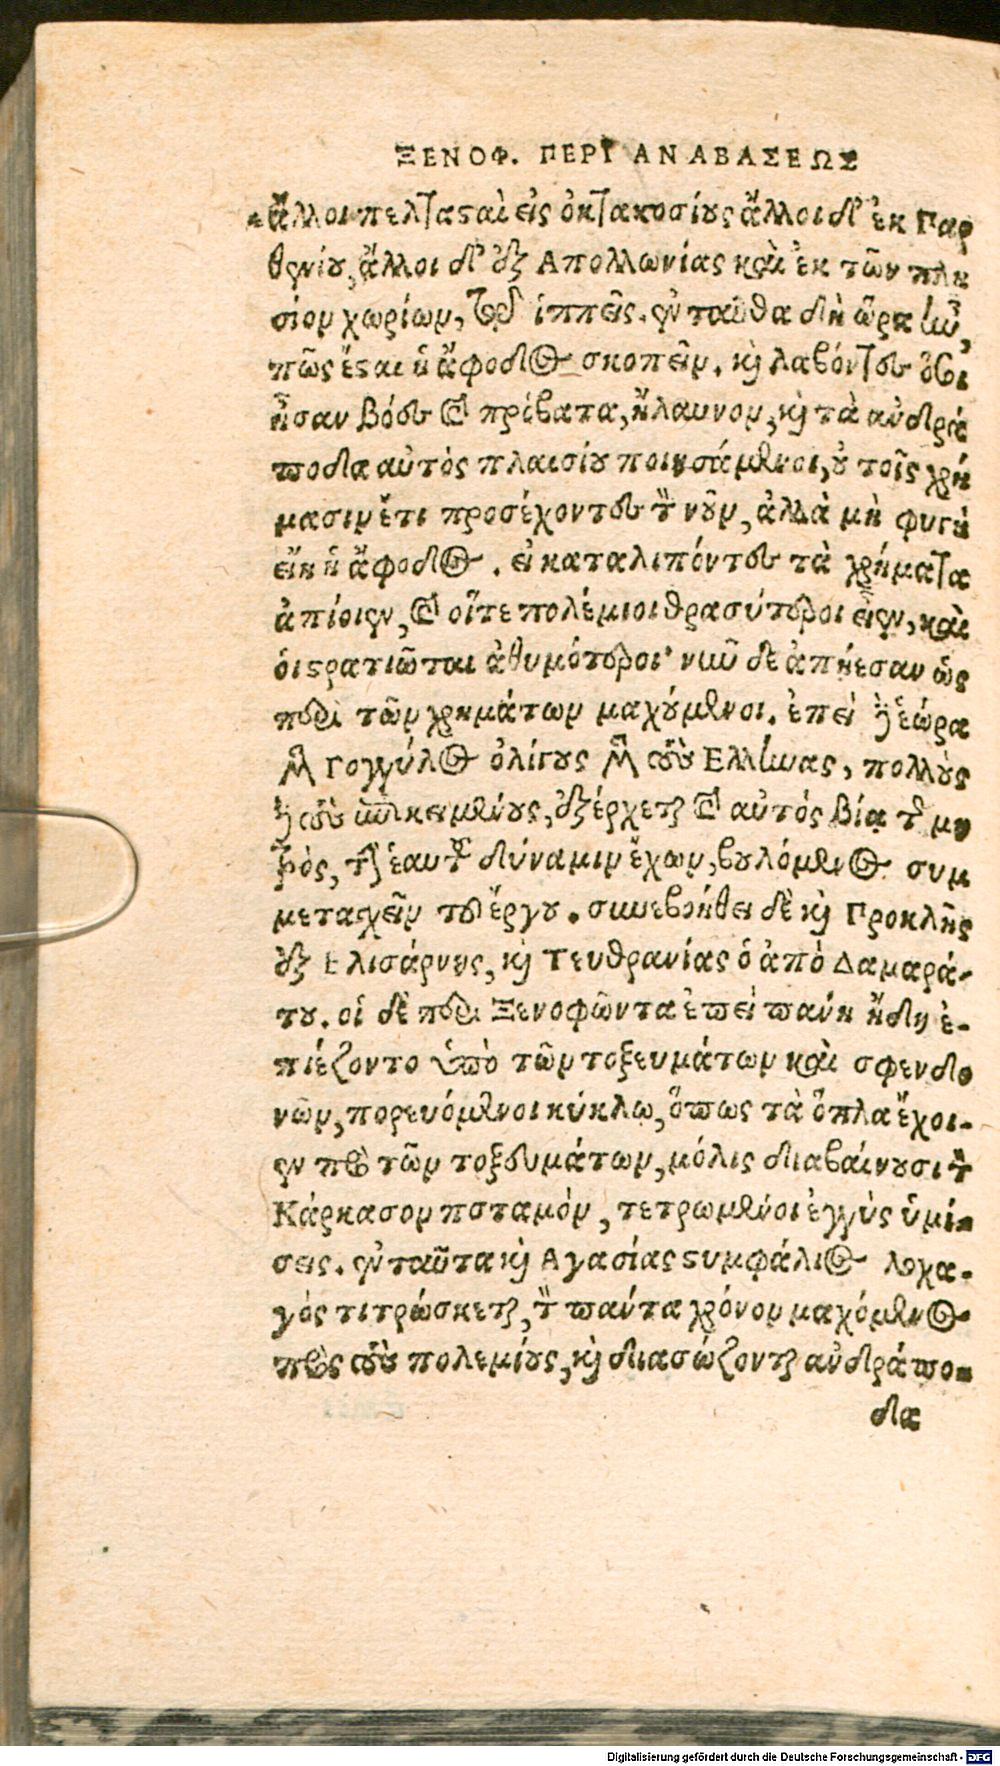 ΞΕΝΟΦ. ΠΕΡῚ ΑΝΑΒΑΣΕΩΣ
ἄλλοι πελτασαὶ εἰς ὀκτακοσίους ἄλλοι δ' ἐκ Παρ
θενίου, ἄλλοι δ' ἐξ Απολλωνίας καὶ ἐκ τῶν πλη
σίον χωρίων, καὶ ἱππεῖς. ἐνταῦθα δὴ ὥρα ἦν,
πῶς ἔσαι ἡ ἄφοδος σκοπεῖν. κὶ λαβόντες ὅσοι
ἦσαν βόες καὶ πρόβατα, ἤλαυνον, κὶ τὰ ανδρά
ποδα αὐτὸς πλαισίου ποιησάμενοι, οὐ τοῖς χρή
μασιν ἔτι προσέχοντες τὸν νοῦν, ἀλλὰ μὴ φυγὴ
εἴη ἡ ἄφοδος. εἰ καταλιπόντες τὰ χρήματα
ἀπίοιεν, καὶ οἵτε πολέμιοι θρασύτεροι εἶεν, καὶ
οἱ σρατιῶται ἀθυμότεροι· νῦν δὲ ἀπῄεσαν ὡς
περὶ τῶν χρημάτων μαχούμενοι. ἐπεὶ δὲ ἑώρα
μὲν Γογγύλος ὀλίγους μὲν τοὺς Ελληνας, πολλοὺς
δὲ τοὺς ἐπικειμένους, ἐξέρχεται καὶ αὐτὸς βίᾳ τῆς μη
τρὸς, τὴν ἑαυτοῦ δύναμιν ἔχων, βουλόμενος συμ
μετασχεῖν τοῦ ἔργου. συνεβοήθει δὲ κὶ Προκλῆς
ἐξ Ελισάρνης, κὶ Τευθρανίας ὁ ἀπὸ Δαμαρά-
του. οἱ δὲ περὶ Ξενοφῶντα ἐπεὶ πανὴ ἤδη ἐ-
πιέζοντο ὑπὸ τῶν τοξευμάτων καὶ σφενδο
νῶν, πορευόμενοι κύκλω, ὅπως τὰ ὅπλα ἔχοι-
εν πρὸ τῶν τοξευμάτων, μόλις διαβαίνουσι τὸν
Κάρκασον ποταμὸν, τετρωμένοι ἐγγὺς ἡμί-
σεις. ἐνταῦτα κὶ Αγασίας συμφάλιος λοχα-
γὸς τιτρώσκεται, τὸν πάντα χρόνον μαχόμενος
πρὸς τοὺς πολεμίους, κὶ διασώζονται ανδράπο-
δα
Digitalisierung gefördert durch die Deutsche Forschungsgemeinschaft - DFG